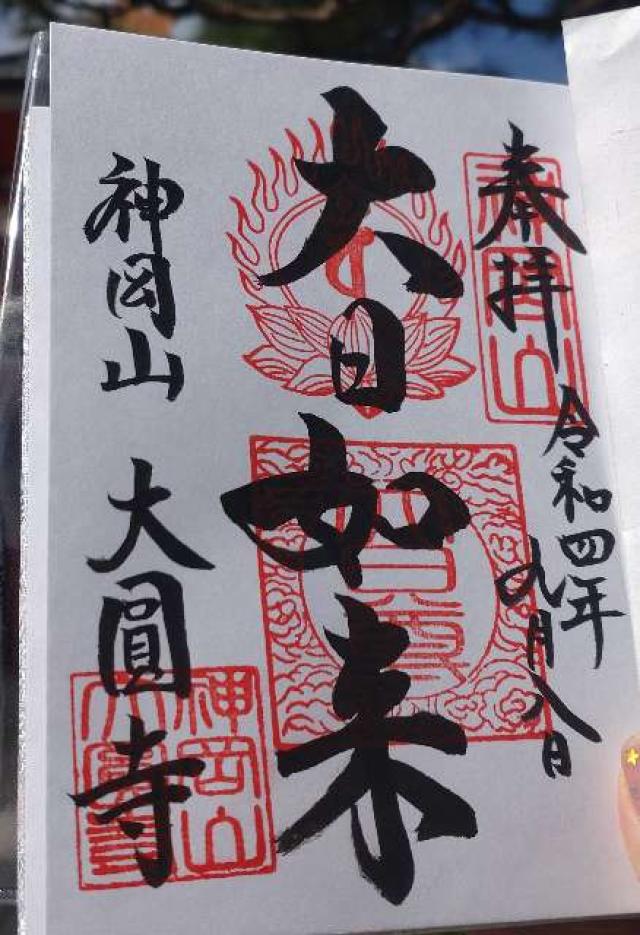 奉拝
令和四年
九月八日
大日如来
神岡山
大圓寺
神岡山
神岡山
大圓寺